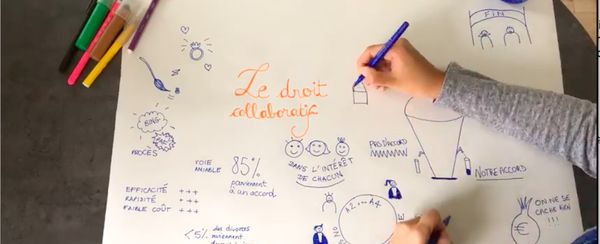 FIN
Le droit
collaboratif
BING
PROCÈS
VOIE
AMIABLE
85%
parviennent
à un accord.
DANS L'INTÉRÊT
DE CHACUN
PAS D'ACCORD
NOTRE ACCORD
EFFICACITÉ +++
RAPIDITÉ +++
FAIBLE COÛT +++
<5%
des divorces
ON NE SE
CACHE RIEN
!!!
€